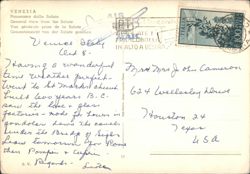 VENEZIA
Panorama dalla Salute
General view from the Salute
Vue générale prise de la Salute
Venice Italy
Oct 8.
Having a wonderful
time weather perfect.
Went to St Marks church
built 600 years B.C.
saw the lace & glass
factories - rode for hours in
gondolas down the canals
under the Bridge of Sighs
leave tomorrow for Rome
then Pompeii & Capri
Regards -
Mr & Mrs John Cameron
624 Wellesley Drive
Houston 24
Texas
USA